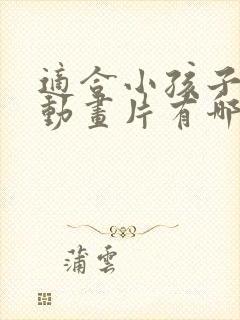 適合小孩子
動畫片有哪
蒲雲